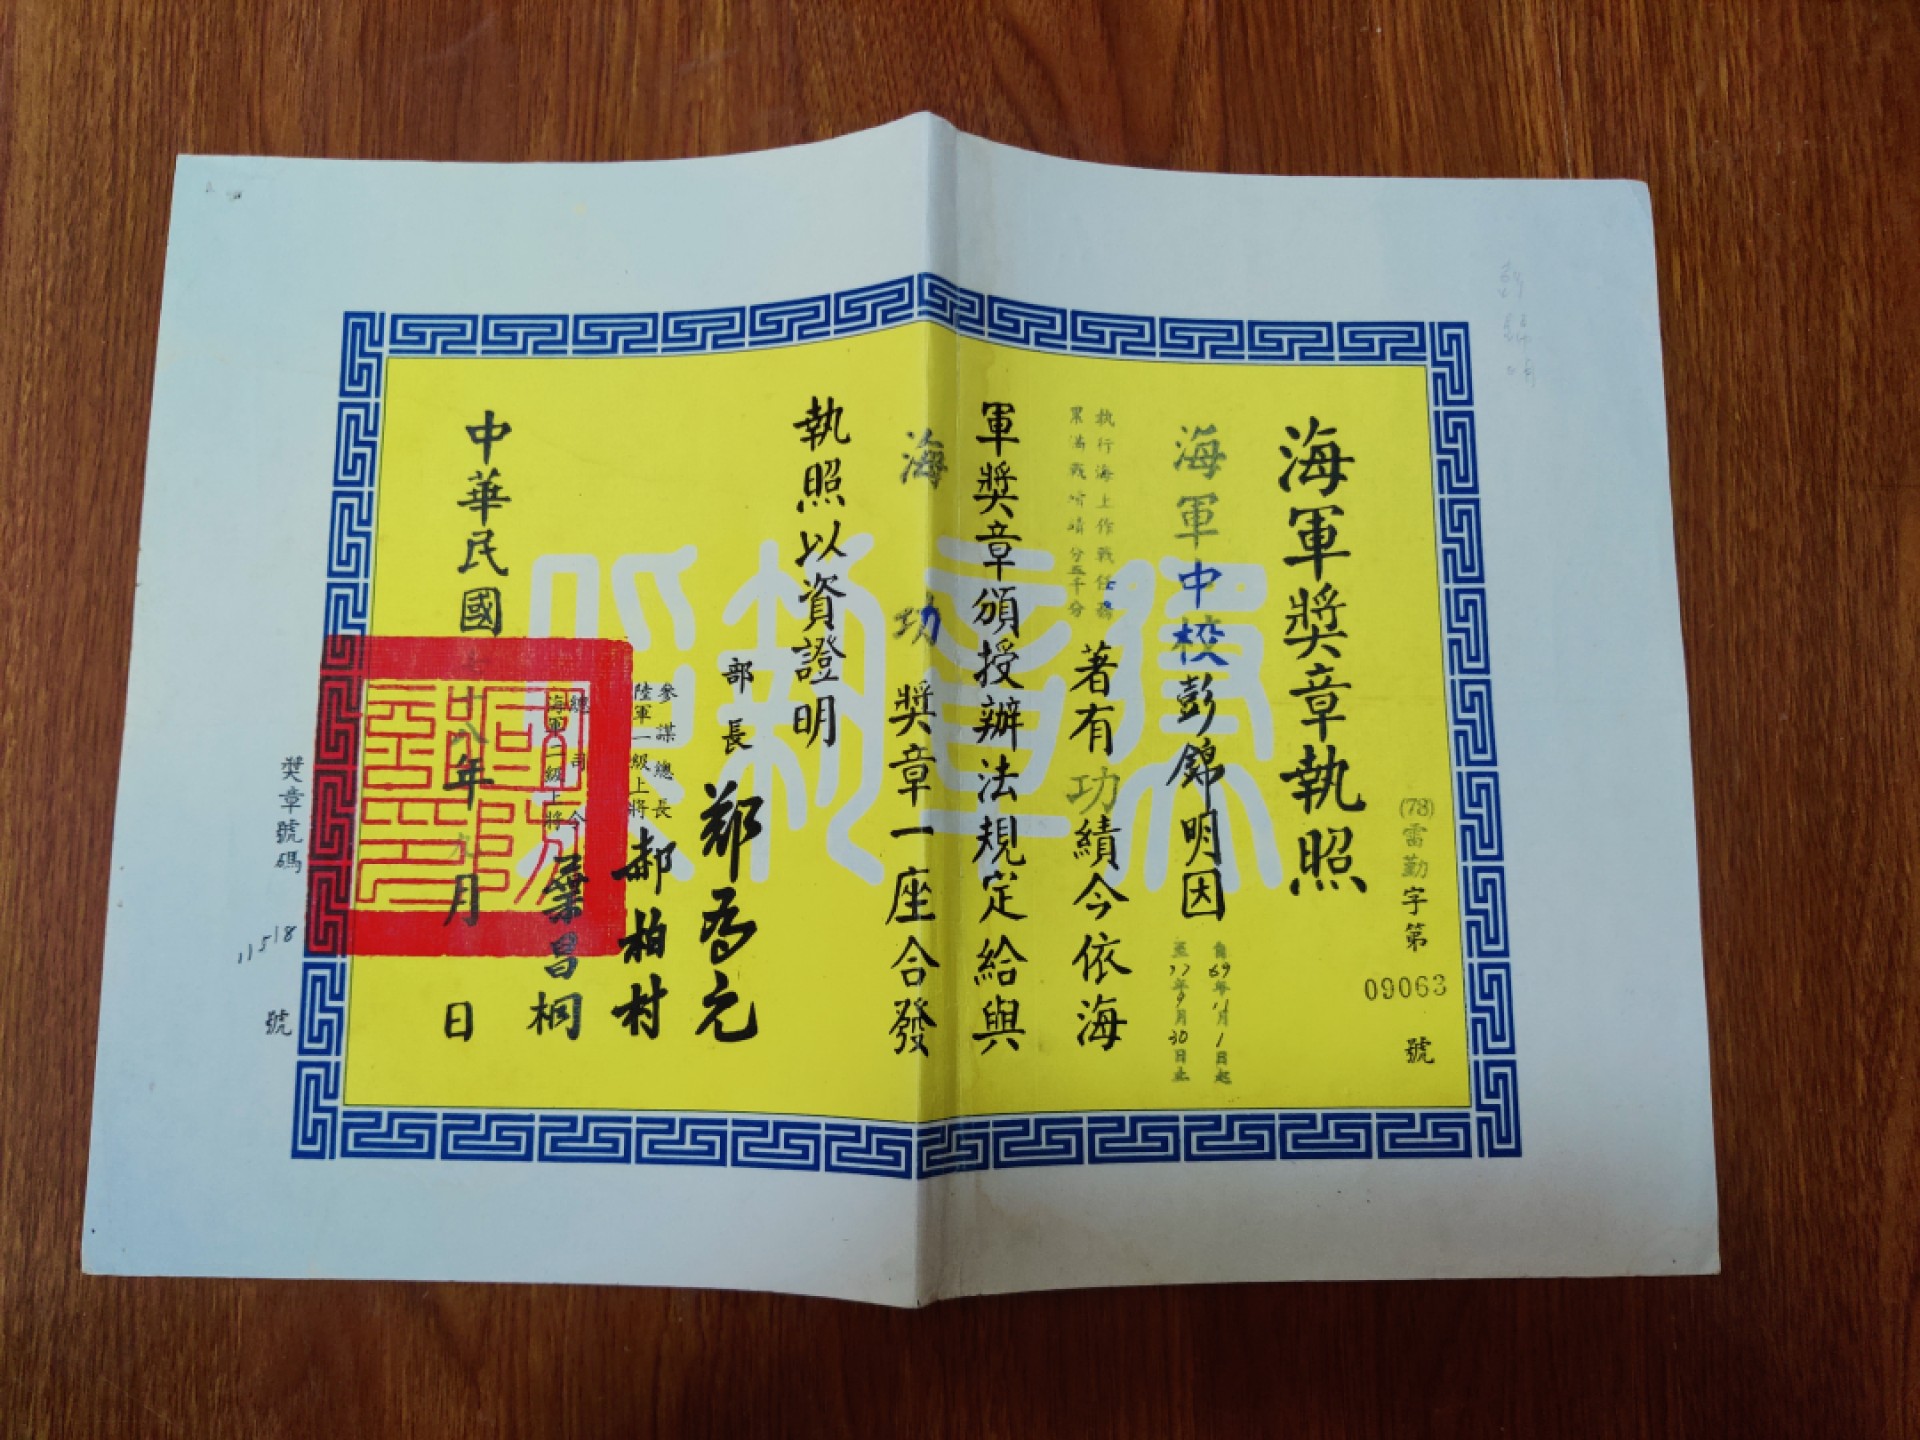 海軍獎章執照
(78)雷勤字第09063號
海軍中校彭錦明因
自69年11月1日起
至77年9月30日止
執行海上作戰任務
累滿戰時積分五千分
著有功績今依海
軍獎章頒授辦法規定給與
海功獎章一座合發
執照以資證明
部長鄭為元
參謀總長
陸軍一級上將
郝柏村
總司令
海軍二級上將
葉昌桐
中華民國七十八年九月日
獎章號碼11518號
彭錦明